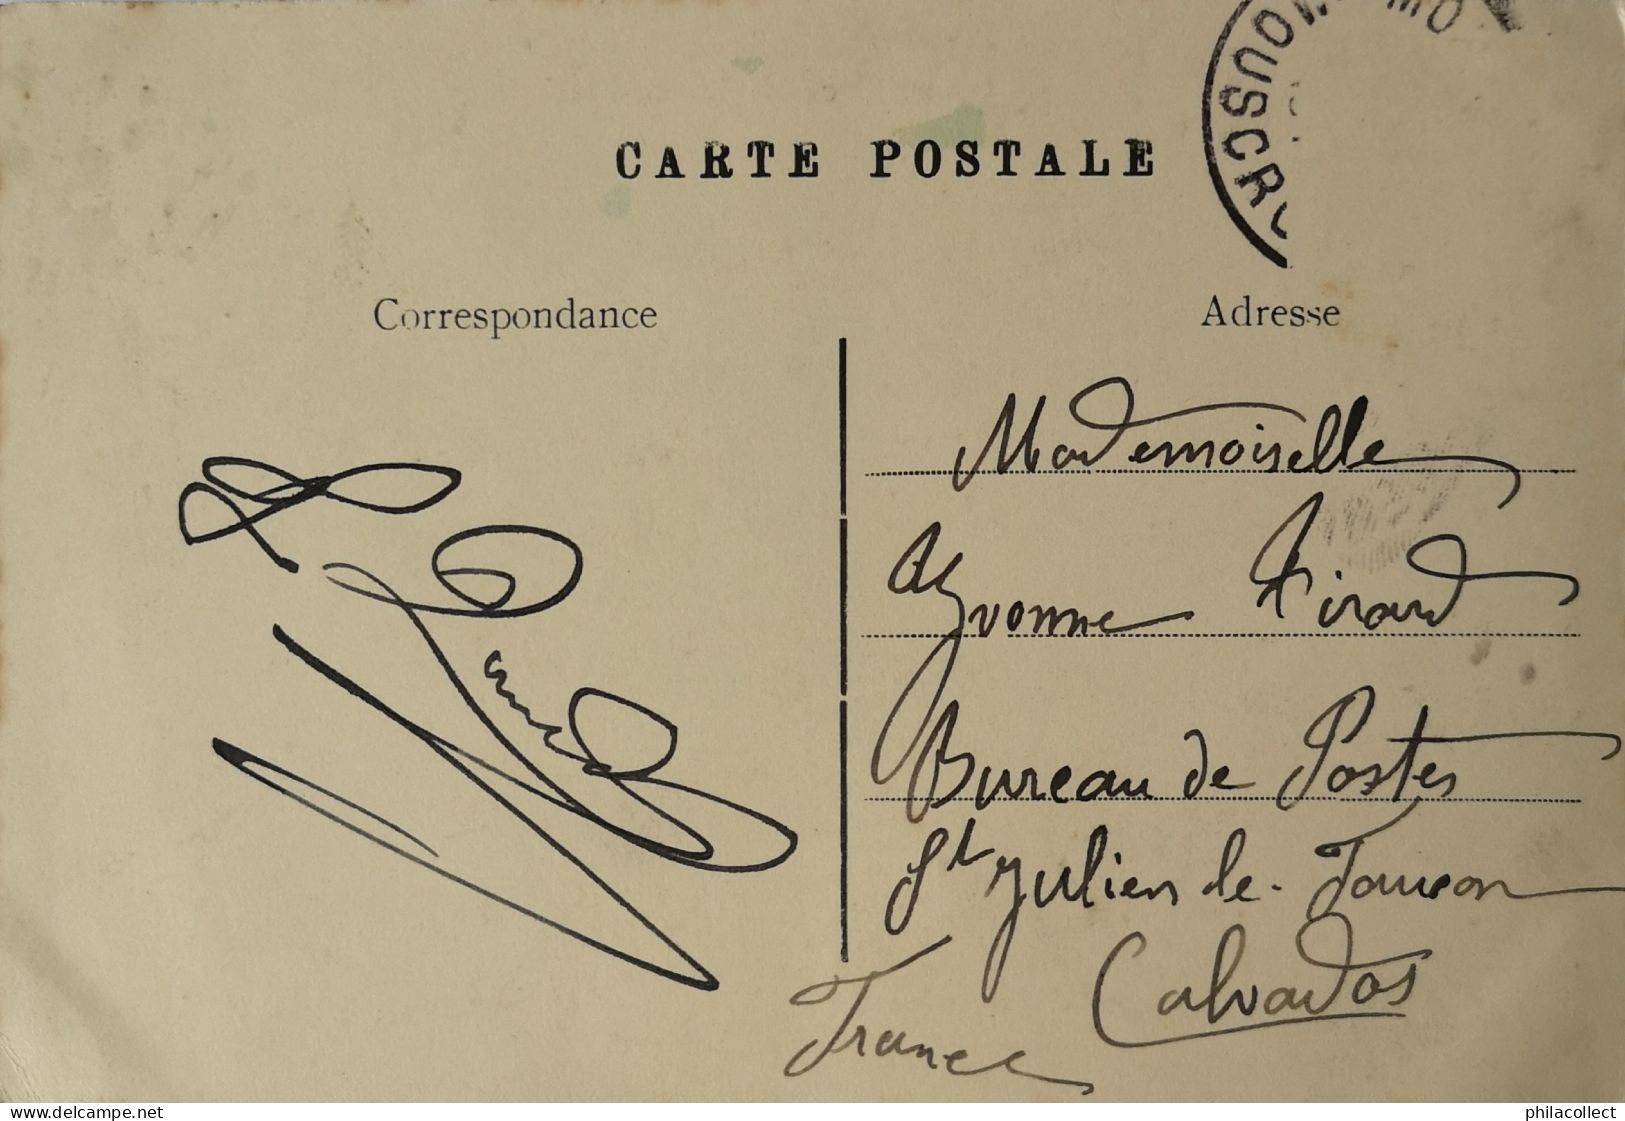 CARTE POSTALE
MOUSCRO
Correspondance
Adresse
Mademoiselle
Yvonne Tirard
Bureau de Postes
St Julien le-Faucon
Calvados
France
philacollect
www.delcampe.net